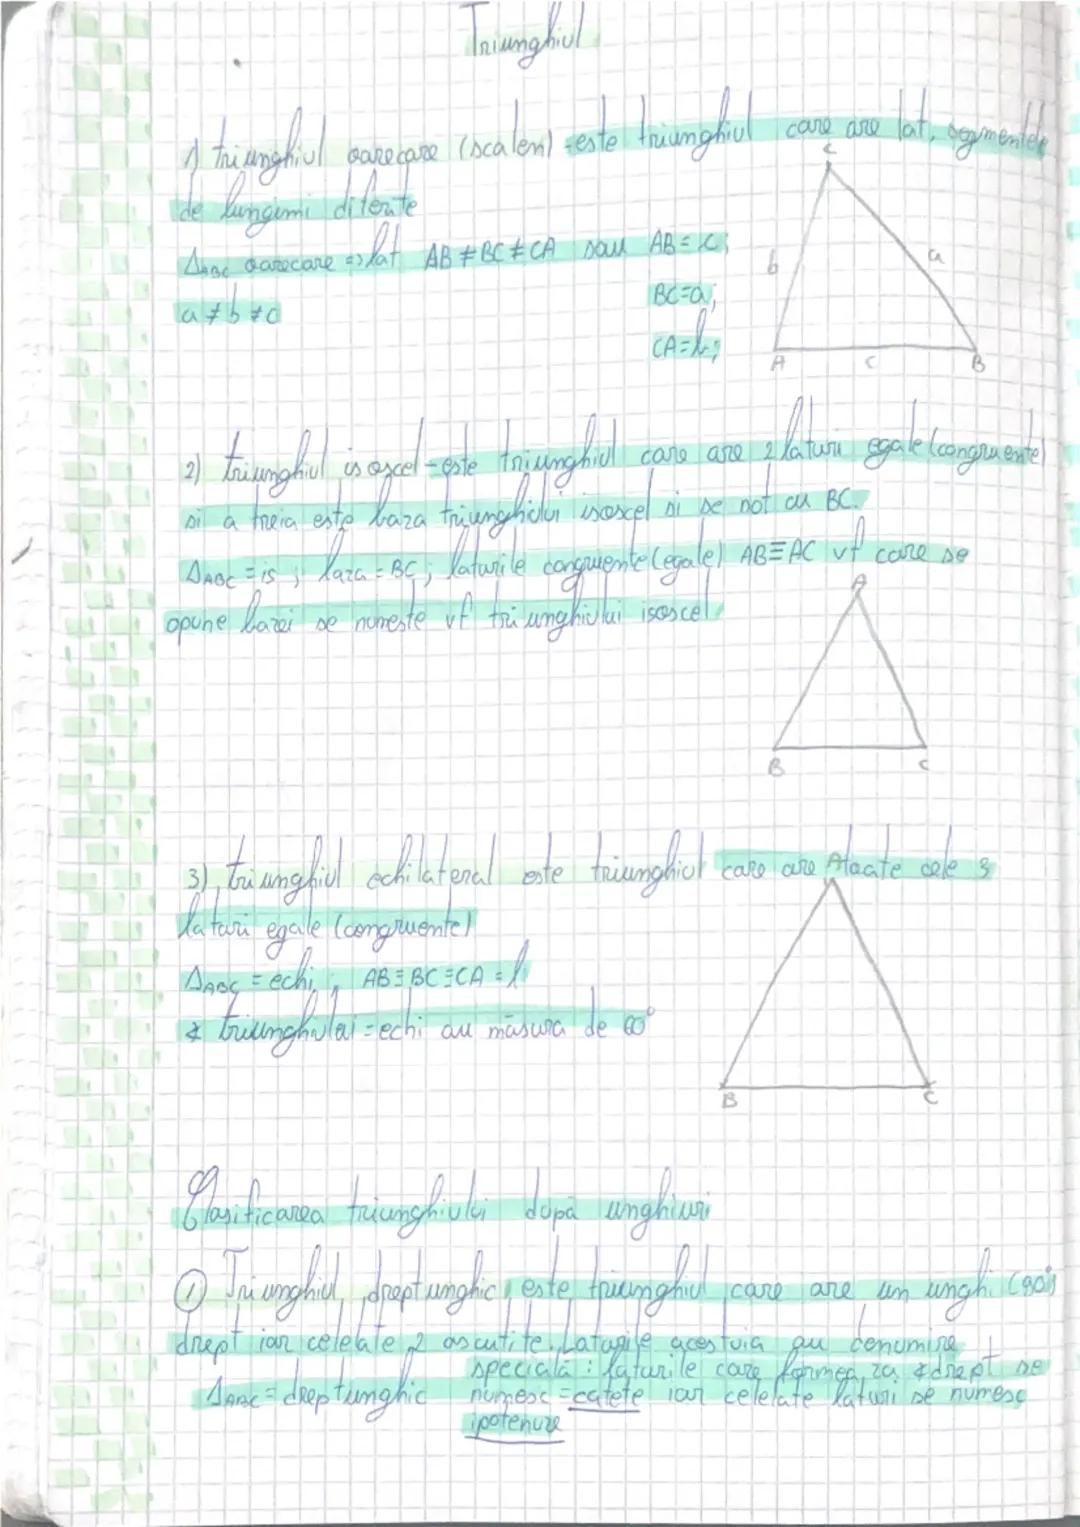 Triunghiul
1) triunghiul oarecare (scalen) - este triunghiul care are lat, segmentele
de lungimi diferite
△ABC oarecare => lat AB ≠ BC ≠ CA sau AB = c;
a ≠ b ≠ c
BC = a;
CA = b;
C
b
a
A
c
B
2) triunghiul isoscel - este triunghiul care are 2 laturi egale (congruente)
si a treia este baza triunghiului isoscel si se not cu BC.
△ABC = is ; baza = BC ; laturile congruente (egale) AB ≡ AC vf care se
opune bazei se numeste vf triunghiului isoscel
A
B
C
3) triunghiul echilateral este triunghiul care are toate cele 3
laturi egale (congruente)
△ABC = echi ; AB ≡ BC ≡ CA = l
∢ triunghiului = echi au măsura de 60°
A
B
C
Clasificarea triunghiului după unghiuri
① Triunghiul dreptunghic este triunghiul care are un unghi (90°)
drept iar celelate 2 ascutite. Laturile acestuia au denumire
specială : laturile care formea za ∢ drept se
△ABC = dreptunghic numesc = catete iar celelate laturi se numesc
ipotenuze